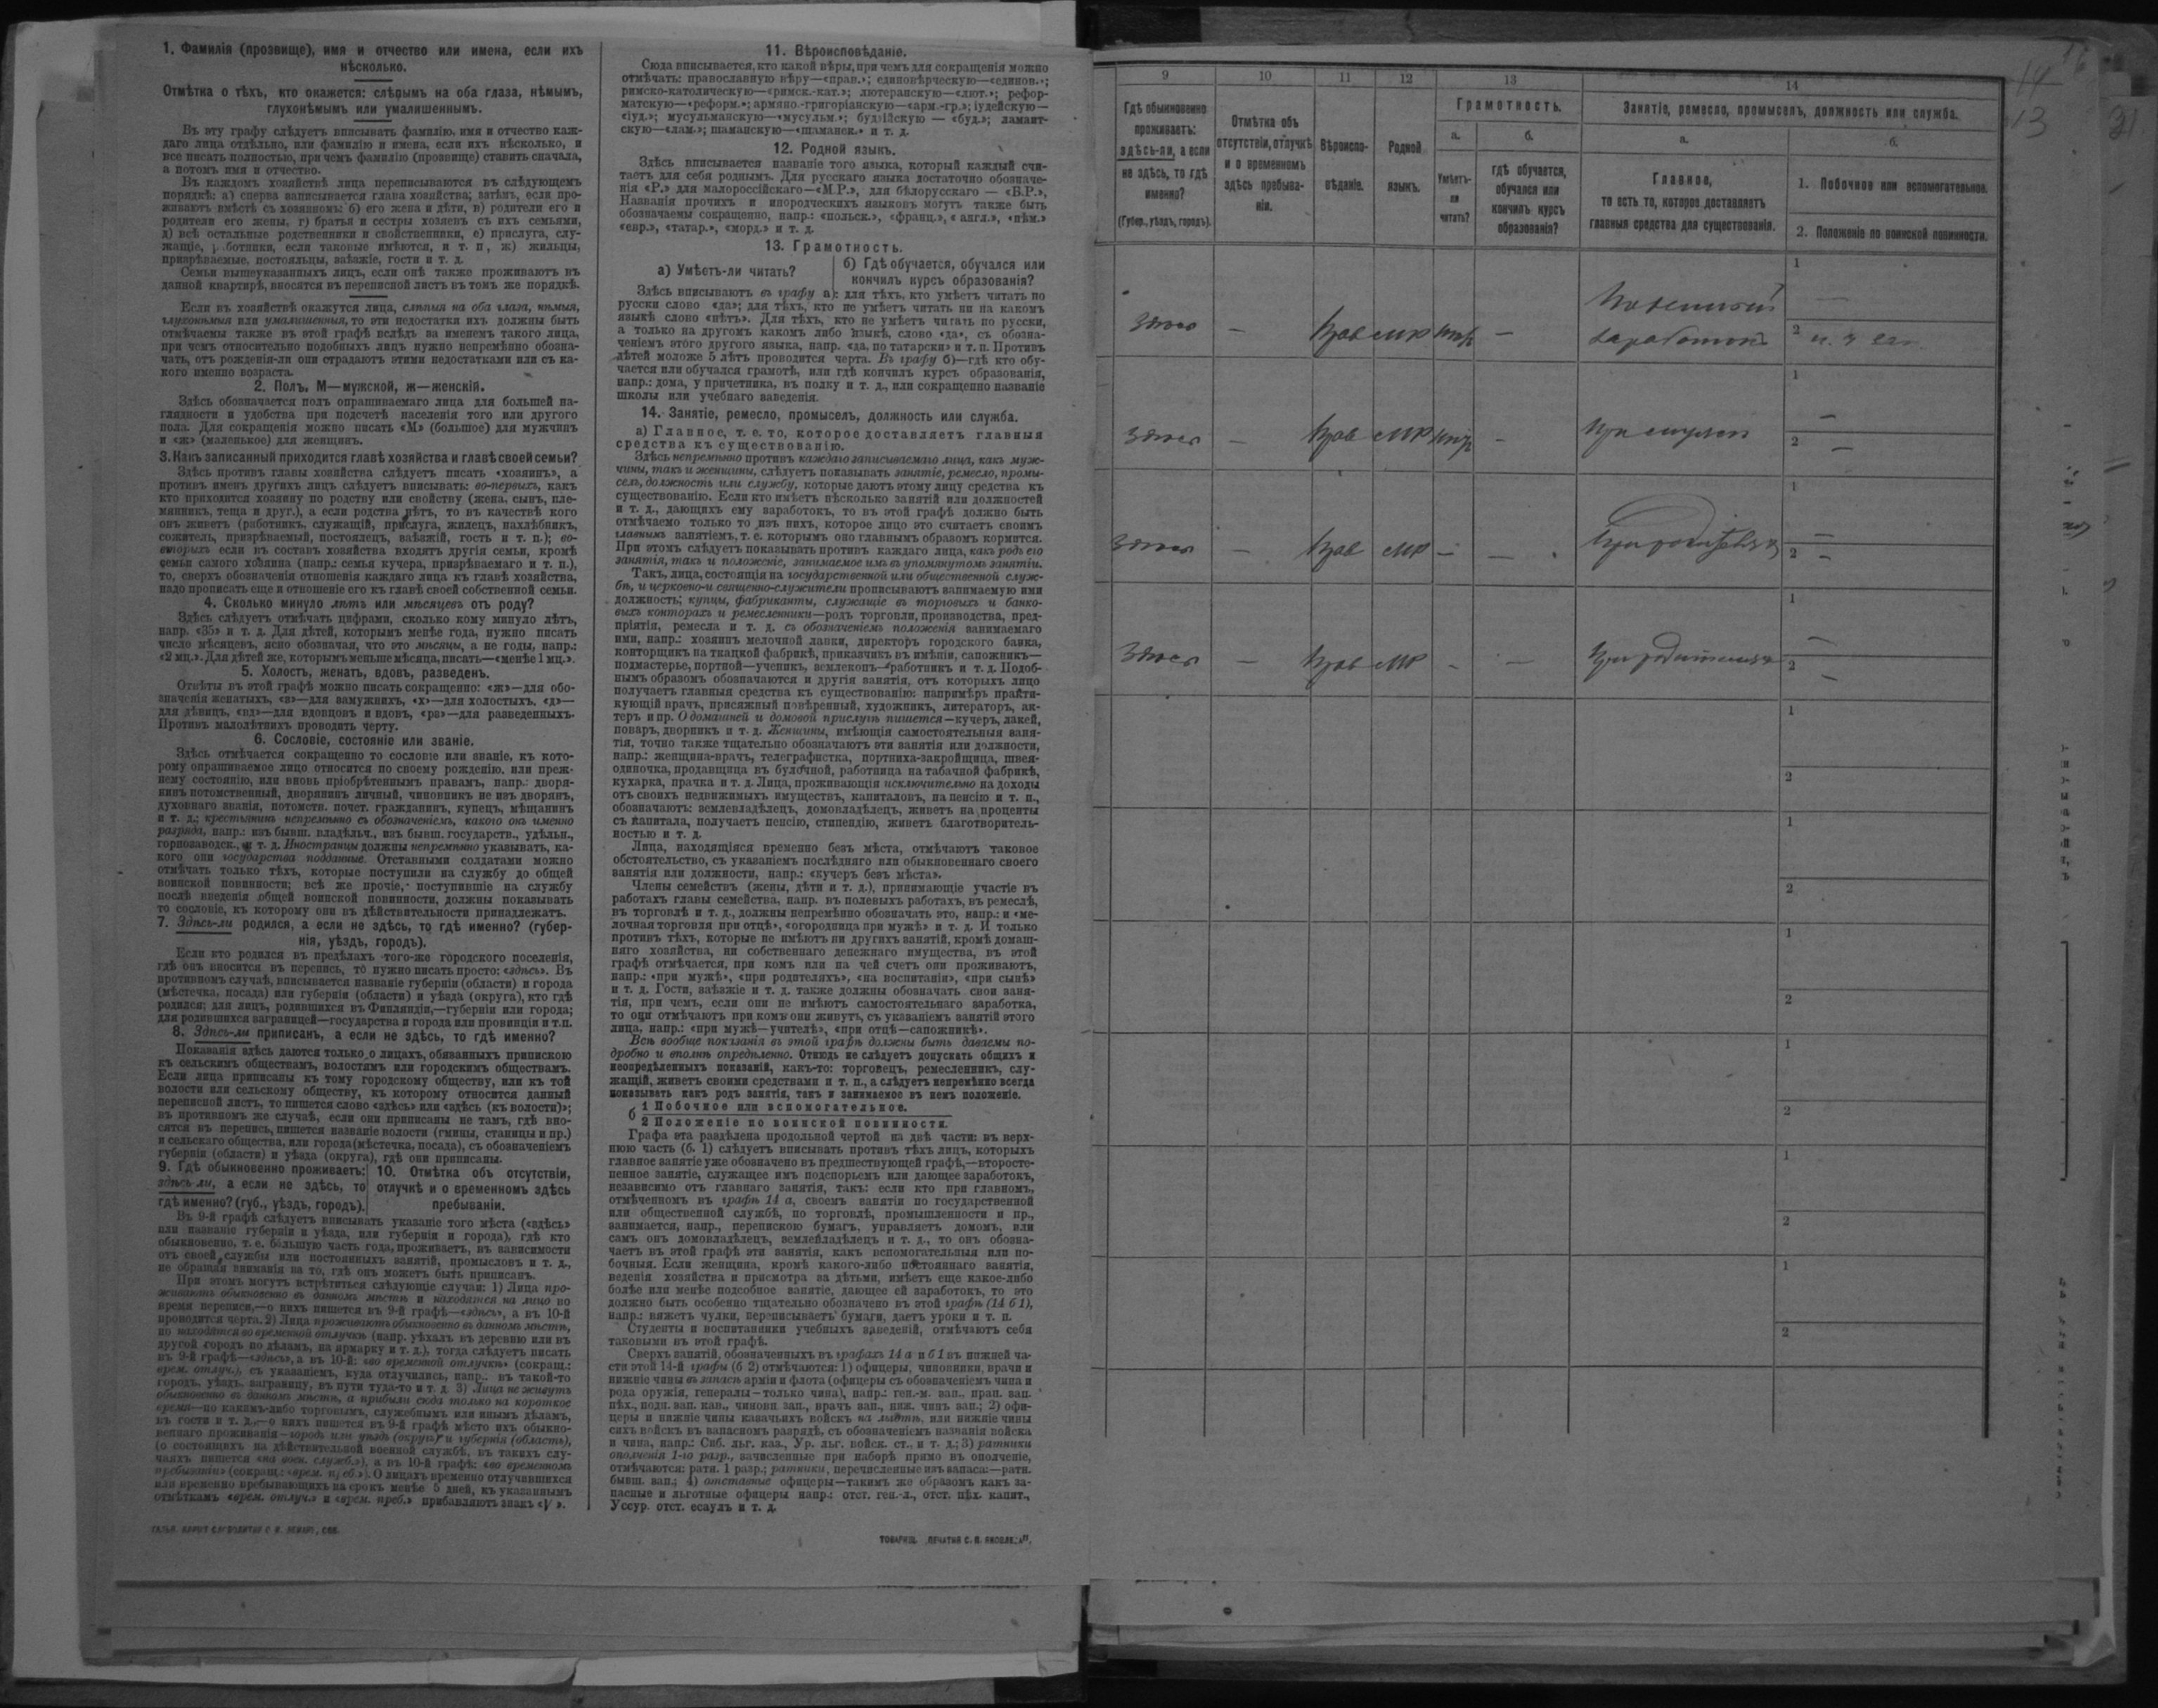 1. Фамилія (прозвище), имя и отчество или имена, если ихъ
нѣсколько.
Отмѣтка о тѣхъ, кто окажется: слѣпымъ на оба глаза, нѣмымъ,
глухонѣмымъ или умалишеннымъ.
Въ эту графу слѣдуетъ вписывать фамилію, имя и отчество каж-
даго лица отдѣльно, или фамилію и имена, если ихъ нѣсколько, и
все писать полностью, при чемъ фамилію (прозвище) ставить сначала,
а потомъ имя и отчество.
Въ каждомъ хозяйствѣ лица переписываются въ слѣдующемъ
порядкѣ: а) сперва записывается глава хозяйства; затѣмъ, если про-
живаютъ вмѣстѣ съ хозяиномъ: б) его жена и дѣти, в) родители его и
родители его жены, г) братья и сестры хозяевъ съ ихъ семьями,
д) всѣ остальные родственники и свойственники, е) прислуга, слу-
жащіе, работники, если таковые имѣются, и т. п., ж) жильцы,
призрѣваемые, постояльцы, заѣзжіе, гости и т. д.
Семьи вышеуказанныхъ лицъ, если онѣ также проживаютъ въ
данной квартирѣ, вносятся въ переписной листъ въ томъ же порядкѣ.
Если въ хозяйствѣ окажутся лица, слѣпыя на оба глаза, нѣмыя,
глухонѣмыя или умалишенныя, то эти недостатки ихъ должны быть
отмѣчаемы также въ этой графѣ вслѣдъ за именемъ такого лица,
при чемъ относительно подобныхъ лицъ нужно непремѣнно обозна-
чать, отъ рожденія-ли они страдаютъ этими недостатками или съ ка-
кого именно возраста.
2. Полъ, М—мужской, ж—женскій.
Здѣсь обозначается полъ опрашиваемаго лица для большей на-
глядности и удобства при подсчетѣ населенія того или другого
пола. Для сокращенія можно писать «М» (большое) для мужчинъ
и «ж» (маленькое) для женщинъ.
3. Какъ записанный приходится главѣ хозяйства и главѣ своей семьи?
Здѣсь противъ главы хозяйства слѣдуетъ писать «хозяинъ», а
противъ именъ другихъ лицъ слѣдуетъ вписывать: во-первыхъ, какъ
кто приходится хозяину по родству или свойству (жена, сынъ, пле-
мянникъ, теща и друг.), а если родства нѣтъ, то въ качествѣ кого
онъ живетъ (работникъ, служащій, прислуга, жилецъ, нахлѣбникъ,
сожитель, призрѣваемый, постоялецъ, заѣзжій, гость и т. п.); во-
вторыхъ если въ составъ хозяйства входятъ другія семьи, кромѣ
семьи самого хозяина (напр.: семья кучера, призрѣваемаго и т. п.),
то, сверхъ обозначенія отношенія каждаго лица къ главѣ хозяйства,
надо прописать еще и отношеніе его къ главѣ своей собственной семьи.
4. Сколько минуло лѣтъ или мѣсяцевъ отъ роду?
Здѣсь слѣдуетъ отмѣчать цифрами, сколько кому минуло лѣтъ,
напр. «35» и т. д. Для дѣтей, которымъ менѣе года, нужно писать
число мѣсяцевъ, ясно обозначая, что это мѣсяцы, а не годы, напр.:
«2 мц.». Для дѣтей же, которымъ меньше мѣсяца, писать—«менѣе 1 мц.».
5. Холостъ, женатъ, вдовъ, разведенъ.
Отвѣты въ этой графѣ можно писать сокращенно: «ж»—для обо-
значенія женатыхъ, «з»—для замужнихъ, «х»—для холостыхъ, «д»—
для дѣвицъ, «вд»—для вдовцовъ и вдовъ, «рз»—для разведенныхъ.
Противъ малолѣтнихъ проводить черту.
6. Сословіе, состояніе или званіе.
Здѣсь отмѣчается сокращенно то сословіе или званіе, къ кото-
рому опрашиваемое лицо относится по своему рожденію, или преж-
нему состоянію, или вновь пріобрѣтеннымъ правамъ, напр.: дворя-
нинъ потомственный, дворянинъ личный, чиновникъ не изъ дворянъ,
духовнаго званія, потомств. почет. гражданинъ, купецъ, мѣщанинъ
и т. д.; крестьянинъ непремѣнно съ обозначеніемъ, какого онъ именно
разряда, напр.: изъ бывш. владѣльч., изъ бывш. государств., удѣльн.,
горнозаводск., и т. д. Иностранцы должны непремѣнно указывать, ка-
кого они государства подданные. Отставными солдатами можно
отмѣчать только тѣхъ, которые поступили на службу до общей
воинской повинности; всѣ же прочіе, поступившіе на службу
послѣ введенія общей воинской повинности, должны показывать
то сословіе, къ которому они въ дѣйствительности принадлежатъ.
7. Здѣсь-ли родился, а если не здѣсь, то гдѣ именно? (губер-
нія, уѣздъ, городъ).
Если кто родился въ предѣлахъ того-же городского поселенія,
гдѣ онъ вносится въ перепись, то нужно писать просто: «здѣсь». Въ
противномъ случаѣ, вписывается названіе губерніи (области) и города
(мѣстечка, посада) или губерніи (области) и уѣзда (округа), кто гдѣ
родился; для лицъ, родившихся въ Финляндіи,—губерніи или города;
для родившихся заграницей—государства и города или провинціи и т.п.
8. Здѣсь-ли приписанъ, а если не здѣсь, то гдѣ именно?
Показанія здѣсь даются только о лицахъ, обязанныхъ припискою
къ сельскимъ обществамъ, волостямъ или городскимъ обществамъ.
Если лица приписаны къ тому городскому обществу, или къ той
волости или сельскому обществу, къ которому относится данный
переписной листъ, то пишется слово «здѣсь» или «здѣсь (къ волости)»;
въ противномъ же случаѣ, если они приписаны не тамъ, гдѣ вно-
сятся въ перепись, пишется названіе волости (гмины, станицы и пр.)
и сельскаго общества, или города (мѣстечка, посада), съ обозначеніемъ
губерніи (области) и уѣзда (округа), гдѣ они приписаны.
9. Гдѣ обыкновенно проживаетъ:
здѣсь ли, а если не здѣсь, то
гдѣ именно? (губ., уѣздъ, городъ).
10. Отмѣтка объ отсутствіи,
отлучкѣ и о временномъ здѣсь
пребываніи.
Въ 9-й графѣ слѣдуетъ вписывать указаніе того мѣста («здѣсь»
или названіе губерніи и уѣзда, или губерніи и города), гдѣ кто
обыкновенно, т. е. большую часть года, проживаетъ, въ зависимости
отъ своей службы или постоянныхъ занятій, промысловъ и т. д.,
не обращая вниманія на то, гдѣ онъ можетъ быть приписанъ.
При этомъ могутъ встрѣтиться слѣдующіе случаи: 1) Лица про-
живаютъ обыкновенно въ данномъ мѣстѣ и находятся на лицо во
время переписи,—о нихъ пишется въ 9-й графѣ—«здѣсь», а въ 10-й
проводится черта. 2) Лица проживаютъ обыкновенно въ данномъ мѣстѣ,
но находятся во временной отлучкѣ (напр. уѣхалъ въ деревню или въ
другой городъ по дѣламъ, на ярмарку и т. д.), тогда слѣдуетъ писать
въ 9-й графѣ—«здѣсь», а въ 10-й: «во временной отлучкѣ» (сокращ.:
врем. отлуч.), съ указаніемъ, куда отлучились, напр.: въ такой-то
городъ, уѣздъ, заграницу, въ пути туда-то и т. д. 3) Лица не живутъ
обыкновенно въ данномъ мѣстѣ, а прибыли сюда только на короткое
время—по какимъ-либо торговымъ, служебнымъ или инымъ дѣламъ,
въ гости и т. д.,—о нихъ пишется въ 9-й графѣ мѣсто ихъ обыкно-
веннаго проживанія—городъ или уѣздъ (округъ) и губернія (область),
(о состоящихъ на дѣйствительной военной службѣ, въ такихъ слу-
чаяхъ пишется «на воен. служб.»), а въ 10-й графѣ: «во временномъ
пребываніи» (сокращ: «врем. преб.»). О лицахъ временно отлучившихся
или временно пребывающихъ на срокъ менѣе 5 дней, къ указаннымъ
отмѣткамъ «врем. отлуч.» и «врем. преб.» прибавляютъ знакъ «V».
11. Вѣроисповѣданіе.
Сюда вписывается, кто какой вѣры, при чемъ для сокращенія можно
отмѣчать: православную вѣру—«прав.»; единовѣрческую—«единов.»;
римско-католическую—«римск.-кат.»; лютеранскую—«лют.»; рефор-
матскую—«реформ.»; армяно-григоріанскую—«арм.-гр.»; іудейскую—
«іуд.»; мусульманскую—«мусульм.»; буддійскую — «буд.»; ламаит-
скую—«лам.»; шаманскую—«шаманск.» и т. д.
12. Родной языкъ.
Здѣсь вписывается названіе того языка, который каждый счи-
таетъ для себя роднымъ. Для русскаго языка достаточно обозначе-
нія «Р.» для малороссійскаго—«М.Р.», для бѣлорусскаго — «Б.Р.»,
Названія прочихъ и инородческихъ языковъ могутъ также быть
обозначаемы сокращенно, напр.: «польск.», «франц.», «англ.», «нѣм.»
«евр.», «татар.», «морд.» и т. д.
13. Грамотность.
а) Умѣетъ-ли читать?
б) Гдѣ обучается, обучался или
кончилъ курсъ образованія?
Здѣсь вписываютъ въ графу а): для тѣхъ, кто умѣетъ читать по
русски слово «да»; для тѣхъ, кто не умѣетъ читать ни на какомъ
языкѣ слово «нѣтъ». Для тѣхъ, кто не умѣетъ читать по русски,
а только на другомъ какомъ либо языкѣ, слово «да», съ обозна-
ченіемъ этого другого языка, напр. «да, по татарски» и т. п. Противъ
дѣтей моложе 5 лѣтъ проводится черта. Въ графу б)—гдѣ кто обу-
чается или обучался грамотѣ, или гдѣ кончилъ курсъ образованія,
напр.: дома, у причетника, въ полку и т. д., или сокращенно названіе
школы или учебнаго заведенія.
14. Занятіе, ремесло, промыселъ, должность или служба.
а) Главное, т. е. то, которое доставляетъ главныя
средства къ существованію.
Здѣсь непремѣнно противъ каждаго записываемаго лица, какъ муж-
чины, такъ и женщины, слѣдуетъ показывать занятіе, ремесло, промы-
селъ, должность или службу, которые даютъ этому лицу средства къ
существованію. Если кто имѣетъ нѣсколько занятій или должностей
и т. д., дающихъ ему заработокъ, то въ этой графѣ должно быть
отмѣчаемо только то изъ нихъ, которое лицо это считаетъ своимъ
главнымъ занятіемъ, т. е. которымъ оно главнымъ образомъ кормится.
При этомъ слѣдуетъ показывать противъ каждаго лица, какъ родъ его
занятія, такъ и положеніе, занимаемое имъ въ упомянутомъ занятіи.
Такъ, лица, состоящія на государственной или общественной служ-
бѣ, и церковно-и священно-служители прописываютъ занимаемую ими
должность; купцы, фабриканты, служащіе въ торговыхъ и банко-
выхъ конторахъ и ремесленники—родъ торговли, производства, пред-
пріятія, ремесла и т. д. съ обозначеніемъ положенія занимаемаго
ими, напр.: хозяинъ мелочной лавки, директоръ городского банка,
конторщикъ на ткацкой фабрикѣ, приказчикъ въ имѣніи, сапожникъ—
подмастерье, портной—ученикъ, землекопъ—работникъ и т. д. Подоб-
нымъ образомъ обозначаются и другія занятія, отъ которыхъ лицо
получаетъ главныя средства къ существованію: напримѣръ практи-
кующій врачъ, присяжный повѣренный, художникъ, литераторъ, ак-
теръ и пр. О домашней и домовой прислугѣ пишется—кучеръ, лакей,
поваръ, дворникъ и т. д. Женщины, имѣющія самостоятельныя заня-
тія, точно также тщательно обозначаютъ эти занятія или должности,
напр.: женщина-врачъ, телеграфистка, портниха-закройщица, швея-
одиночка, продавщица въ булочной, работница на табачной фабрикѣ,
кухарка, прачка и т. д. Лица, проживающія исключительно на доходы
отъ своихъ недвижимыхъ имуществъ, капиталовъ, на пенсію и т. п.,
обозначаютъ: землевладѣлецъ, домовладѣлецъ, живетъ на проценты
съ капитала, получаетъ пенсію, стипендію, живетъ благотворитель-
ностью и т. д.
Лица, находящіяся временно безъ мѣста, отмѣчаютъ таковое
обстоятельство, съ указаніемъ послѣдняго или обыкновеннаго своего
занятія или должности, напр.: «кучеръ безъ мѣста».
Члены семействъ (жены, дѣти и т. д.), принимающіе участіе въ
работахъ главы семейства, напр. въ полевыхъ работахъ, въ ремеслѣ,
въ торговлѣ и т. д., должны непремѣнно обозначать это, напр.: и «ме-
лочная торговля при отцѣ», «огородница при мужѣ» и т. д. И только
противъ тѣхъ, которые не имѣютъ ни другихъ занятій, кромѣ домаш-
няго хозяйства, ни собственнаго денежнаго имущества, въ этой
графѣ отмѣчается, при комъ или на чей счетъ они проживаютъ,
напр.: «при мужѣ», «при родителяхъ», «на воспитаніи», «при сынѣ»
и т. д. Гости, заѣзжіе и т. д. также должны обозначать свои заня-
тія, при чемъ, если они не имѣютъ самостоятельнаго заработка,
то они отмѣчаютъ при комъ они живутъ, съ указаніемъ занятій этого
лица, напр.: «при мужѣ—учителѣ», «при отцѣ—сапожникѣ».
Всѣ вообще показанія въ этой графѣ должны быть даваемы по-
дробно и вполнѣ опредѣленно. Отнюдь не слѣдуетъ допускать общихъ и
неопредѣленныхъ показаній, какъ-то: торговецъ, ремесленникъ, слу-
жащій, живетъ своими средствами и т. п., а слѣдуетъ непремѣнно всегда
показывать какъ родъ занятія, такъ и занимаемое въ немъ положеніе.
б 1 Побочное или вспомогательное.
2 Положеніе по воинской повинности.
Графа эта раздѣлена продольной чертой на двѣ части: въ верх-
нюю часть (б. 1) слѣдуетъ вписывать противъ тѣхъ лицъ, которыхъ
главное занятіе уже обозначено въ предшествующей графѣ,—второсте-
пенное занятіе, служащее имъ подспорьемъ или дающее заработокъ,
независимо отъ главнаго занятія, такъ: если кто при главномъ,
отмѣченномъ въ графѣ 14 а, своемъ занятіи по государственной
или общественной службѣ, по торговлѣ, промышленности и пр.,
занимается, напр., перепискою бумагъ, управляетъ домомъ, или
самъ онъ домовладѣлецъ, землевладѣлецъ и т. д., то онъ обозна-
чаетъ въ этой графѣ эти занятія, какъ вспомогательныя или по-
бочныя. Если женщина, кромѣ какого-либо постояннаго занятія,
веденія хозяйства и присмотра за дѣтьми, имѣетъ еще какое-либо
болѣе или менѣе подсобное занятіе, дающее ей заработокъ, то это
должно быть особенно тщательно обозначено въ этой графѣ (14 б 1),
напр.: вяжетъ чулки, переписываетъ бумаги, даетъ уроки и т. п.
Студенты и воспитанники учебныхъ заведеній, отмѣчаютъ себя
таковыми въ этой графѣ.
Сверхъ занятій, обозначенныхъ въ графахъ 14 а и б 1 въ нижней ча-
сти этой 14-й графы (б 2) отмѣчаются: 1) офицеры, чиновники, врачи и
нижніе чины въ запасѣ арміи и флота (офицеры съ обозначеніемъ чина и
рода оружія, генералы—только чина), напр.: ген.-м. зап., прап. зап.
пѣх., подп. зап. кав., чиновн. зап., врачъ зап., ниж. чинъ зап.; 2) офи-
церы и нижніе чины казачьихъ войскъ на льготѣ, или нижніе чины
сихъ войскъ въ запасномъ разрядѣ, съ обозначеніемъ названія войска
и чина, напр.: Сиб. льг. каз., Ур. льг. войск. ст., и т. д.; 3) ратники
ополченія 1-го разр., зачисленные при наборѣ прямо въ ополченіе,
отмѣчаются: ратн. 1 разр.; ратники, перечисленные изъ запаса:—ратн.
бывш. зап.; 4) отставные офицеры—такимъ же образомъ какъ за-
пасные и льготные офицеры напр.: отст. ген.-л., отст. пѣх. капит.,
Уссур. отст. есаулъ и т. д.
ТОВАРИЩ. „ПЕЧАТНЯ С. П. ЯКОВЛЕВА“.
14
13
9
10
11
12
13
14
Гдѣ обыкновенно
проживаетъ:
здѣсь-ли, а если
не здѣсь, то гдѣ
именно?
(Губер., уѣздъ, городъ).
Отмѣтка объ
отсутствіи, отлучкѣ
и о временномъ
здѣсь пребыва-
ніи.
Вѣроиспо-
вѣданіе.
Родной
языкъ.
Грамотность.
а.
Умѣетъ-
ли
читать?
б.
гдѣ обучается,
обучался или
кончилъ курсъ
образованія?
Занятіе, ремесло, промыселъ, должность или служба.
а.
Главное,
то есть то, которое доставляетъ
главныя средства для существованія.
б.
1. Побочное или вспомогательное.
2. Положеніе по воинской повинности.
здѣсь — Прав МР нѣтъ — Поденный
заработокъ
1 —
2
здѣсь — Прав МР нѣтъ — При мужѣ
1 —
2 —
здѣсь — Прав МР — — При родителяхъ
1 —
2 —
здѣсь — Прав МР — — При родителяхъ
1 —
2 —
1
2
1
2
1
2
1
2
1
2
1
2